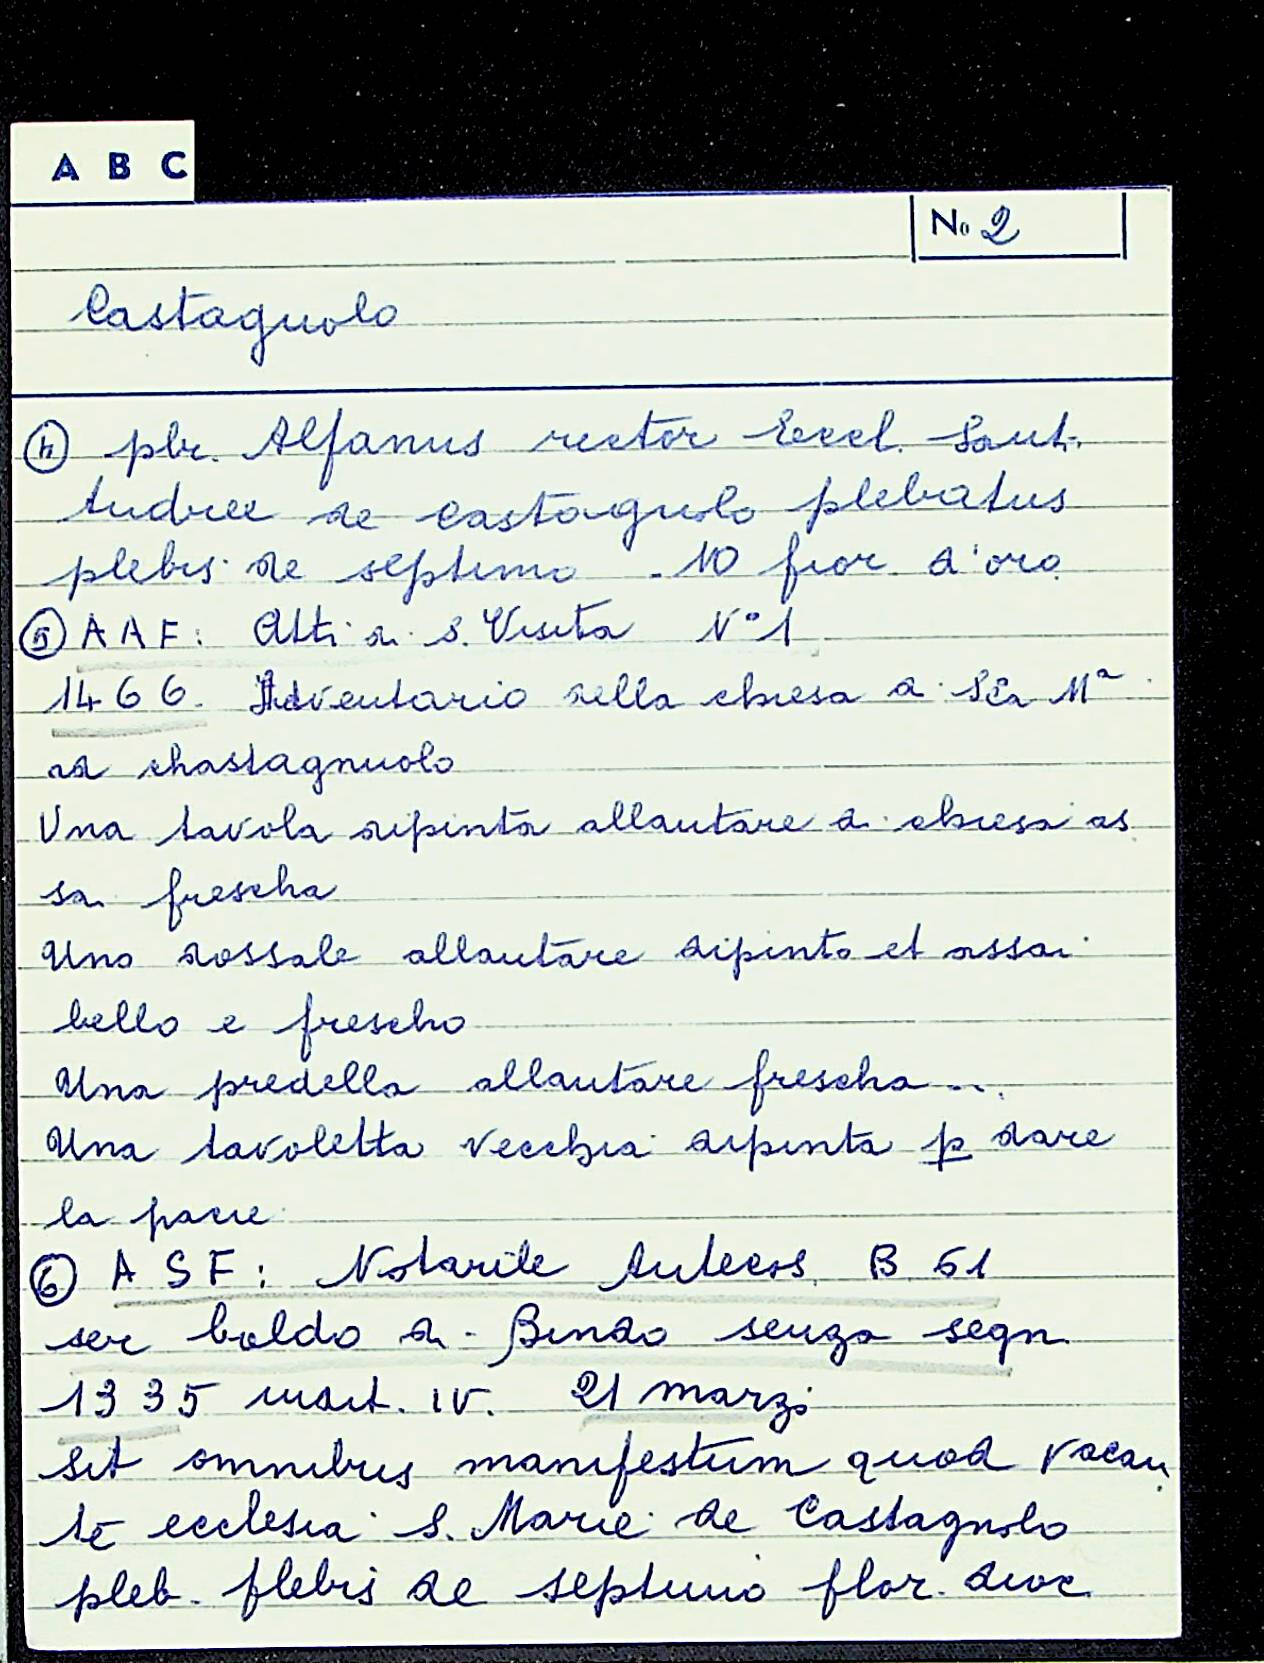 A B C
No 2
Castagnolo
④ pbr. Alfanus rector Eccl. Sanct.
Andree de Castagnolo plebatus
plebis de septimo - 10 fior. d'oro
⑤ A A F: Atti di S. Visita N° 1
1466. Inventario della chiesa di Sta Mª
ad chastagnuolo
Una tavola dipinta allautare di chiesa as
sai frescha
Uno dossale allautare dipinto et assai
bello e frescho
Una predella allautare frescha ...
Una tavoletta vecchia dipinta p dare
la pacie
⑥ A S F: Notarile Antecos. B 61
ser boldo di Bindo senza segn.
1335 inst. IV. 21 marzi
Sit omnibus manifestum quod vocan
te ecclesia S. Marie de Castagnolo
pleb. plebis de septimo flor. dioc.